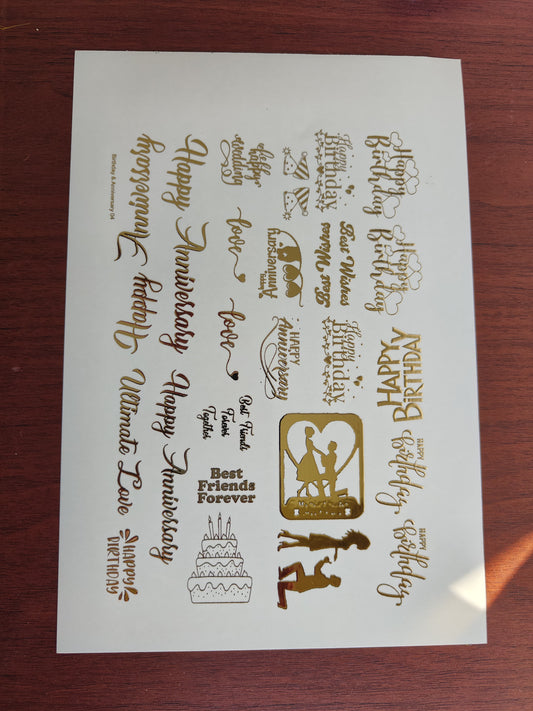 Happy
Birthday
Happy
Birthday
HAPPY
BIRTHDAY
HAPPY
Birthday
HAPPY
Birthday
Happy
Birthday
Best Wishes
Best Wishes
Happy
Birthday
Happy
Anniversary
HAPPY
Anniversary
happy
wedding
love
love
Best Friends
Together
Best
Friends
Forever
Happy Anniversary
Happy Anniversary
Happy Anniversary
Ultimate Love
HAPPY
BIRTHDAY
Birthday & Anniversary 04